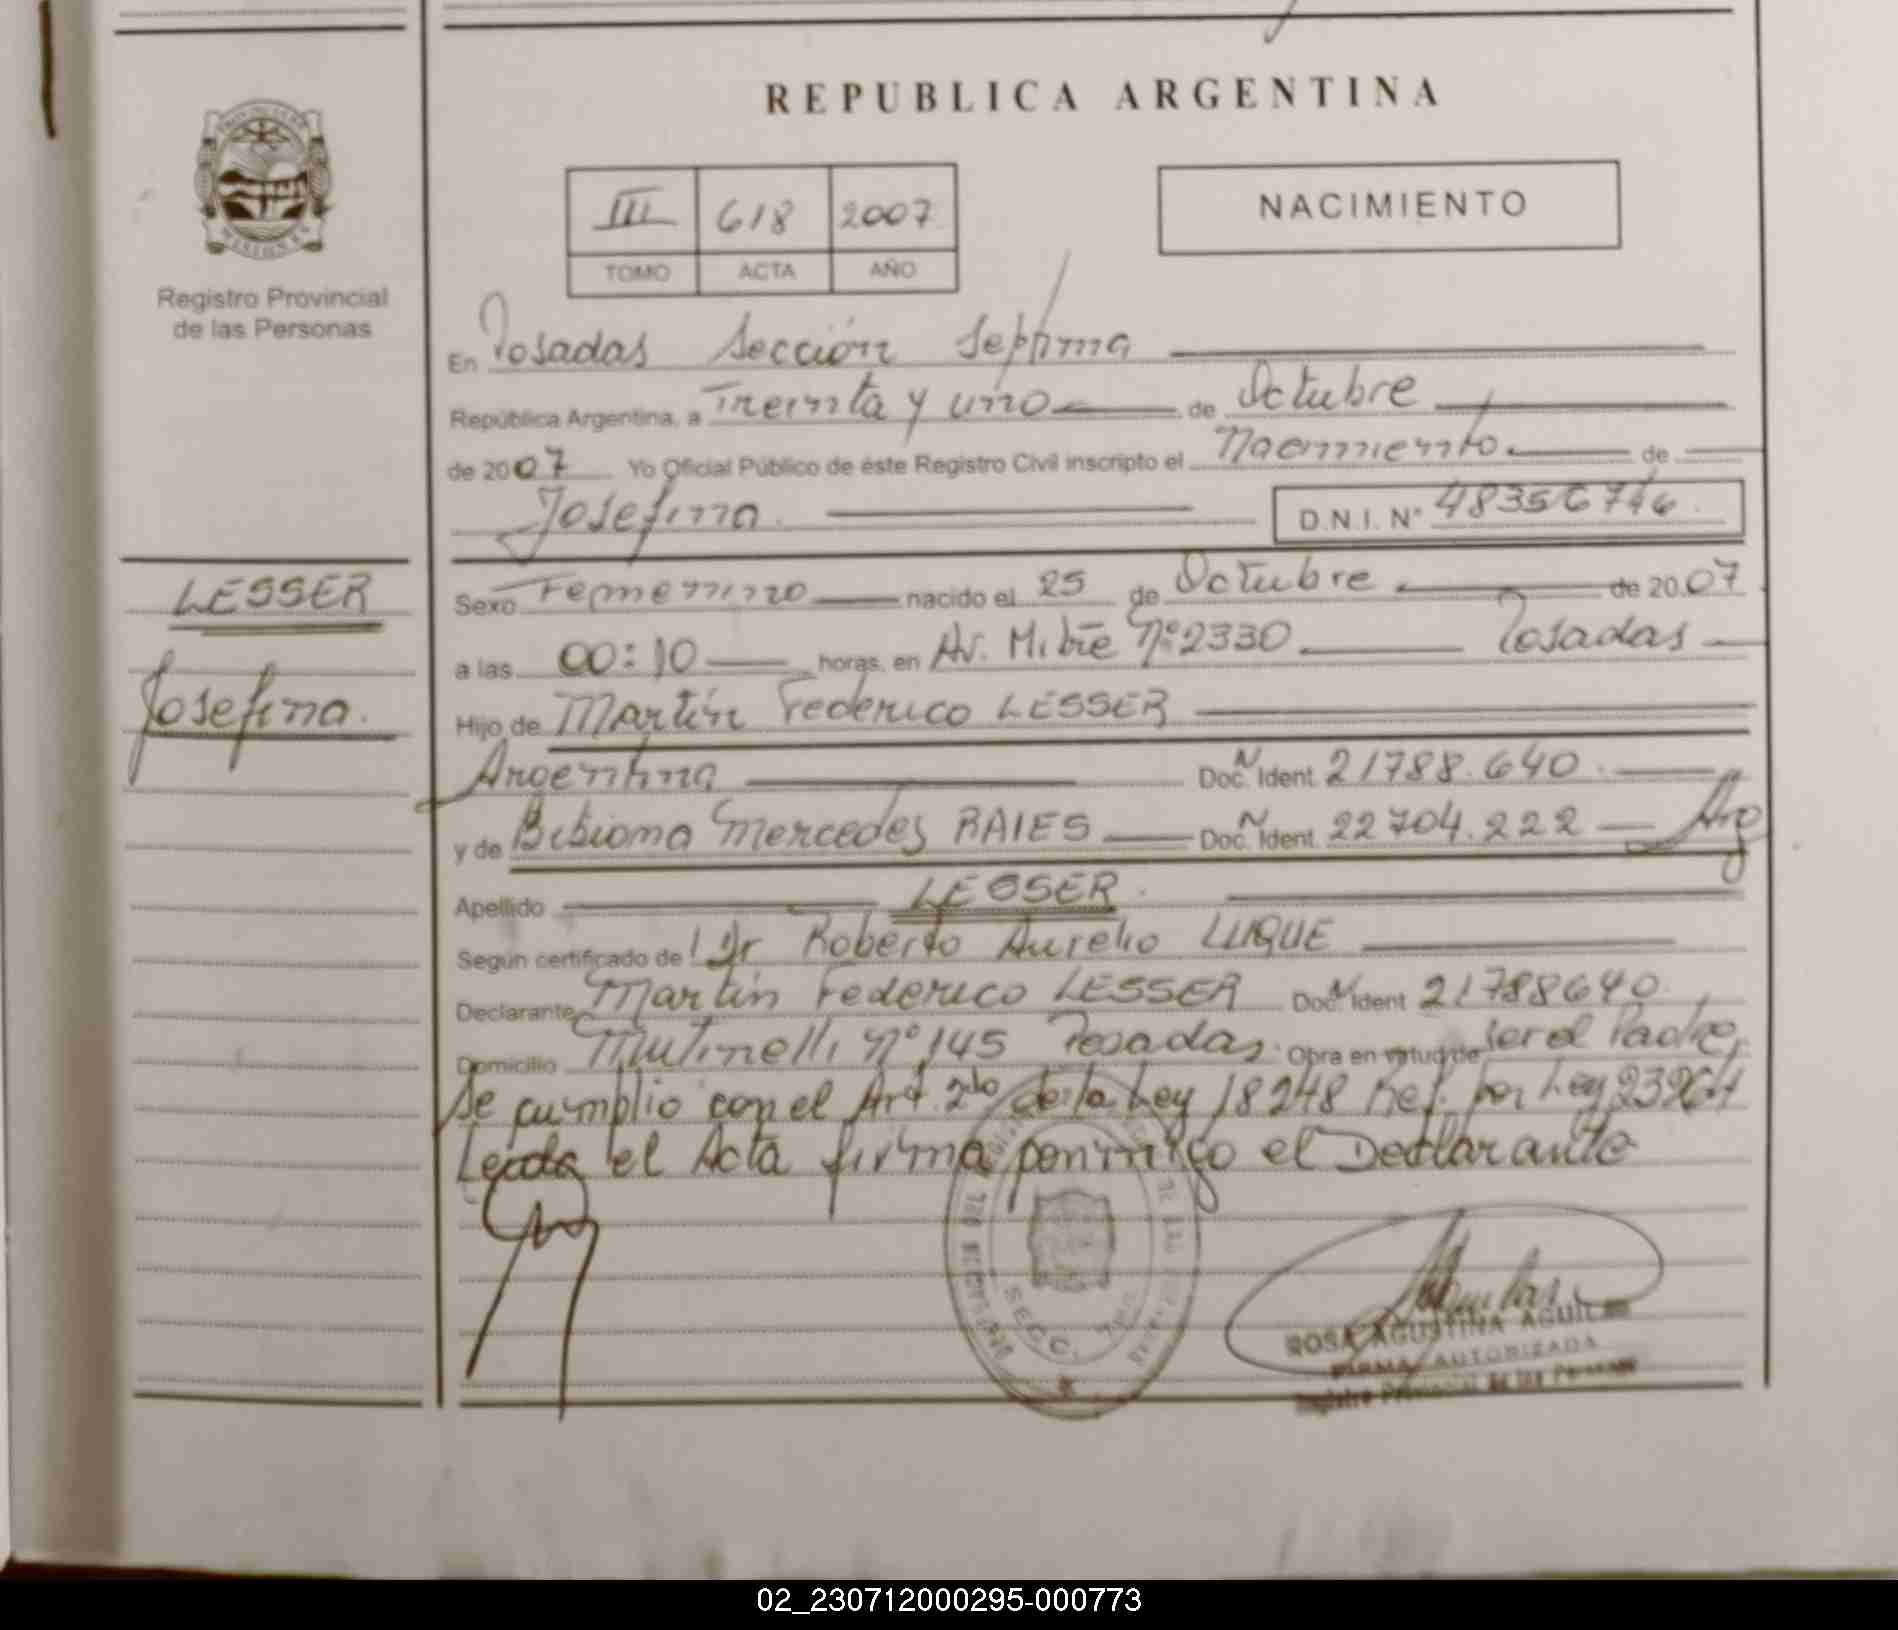 REPUBLICA ARGENTINA
III 618 2007
TOMO ACTA AÑO
NACIMIENTO
Registro Provincial
de las Personas
En Posadas Sección Septima
República Argentina, a Treinta y uno de Octubre
de 2007 Yo Oficial Público de éste Registro Civil inscripto el Nacimiento de
Josefina. D.N.I. Nº 48356746.
LESSER
Josefina.
Sexo Femenino nacido el 25 de Octubre de 2007
a las 00:10 horas, en Av. Mitre Nº 2330 Posadas
Hijo de Martín Federico LESSER
Argentina Doc. N Ident. 21788.640.
y de Bibiana Mercedes RAIES Doc. N Ident. 22704.222 Arg
Apellido LESSER.
Según certificado de Dr Roberto Aurelio LUQUE
Declarante Martín Federico LESSER Doc. N Ident 21788640.
Domicilio Mutinelli Nº 145 Posadas. Obra en virtud de ser el Padre,
Se cumplio con el Art. 2do de la Ley 18248 Ref. por Ley 23264
Leida el Acta firma conmigo el Declarante
SECC. 7
ROSA AGUSTINA AGUILAR
FIRMA AUTORIZADA
Registro Provincial de las Personas
02_230712000295-000773